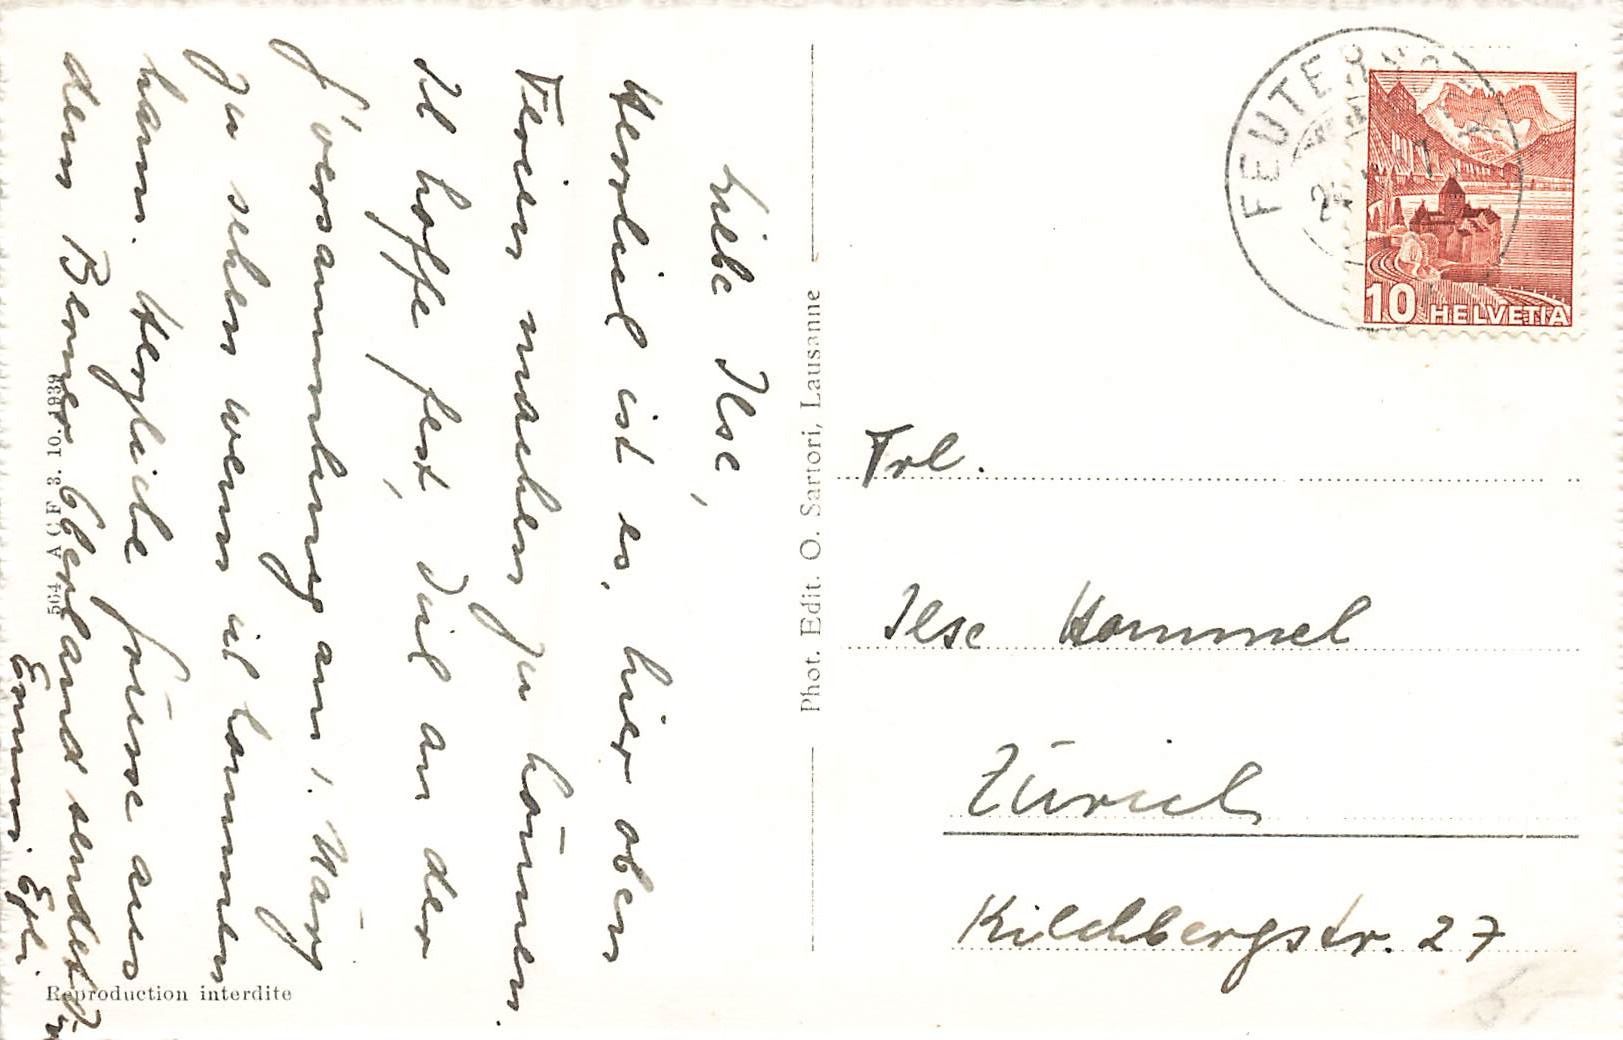 Liebe Ilse,
Herrlich ist es, hier oben
Ferien machen zu können.
Ich hoffe fest, Dich an der
J'versammlung am 1. März
zu sehen wenn ich kommen
kann. Herzliche Grüsse aus
dem Berner Oberland sendet Dir
Emmi Egli.
504 A C F 3. 10. 1939
Reproduction interdite
Phot. Edit. O. Sartori, Lausanne
FEUTERSOEY
10 HELVETIA
Frl.
Ilse Hommel
Zürich
Kilchbergstr. 27